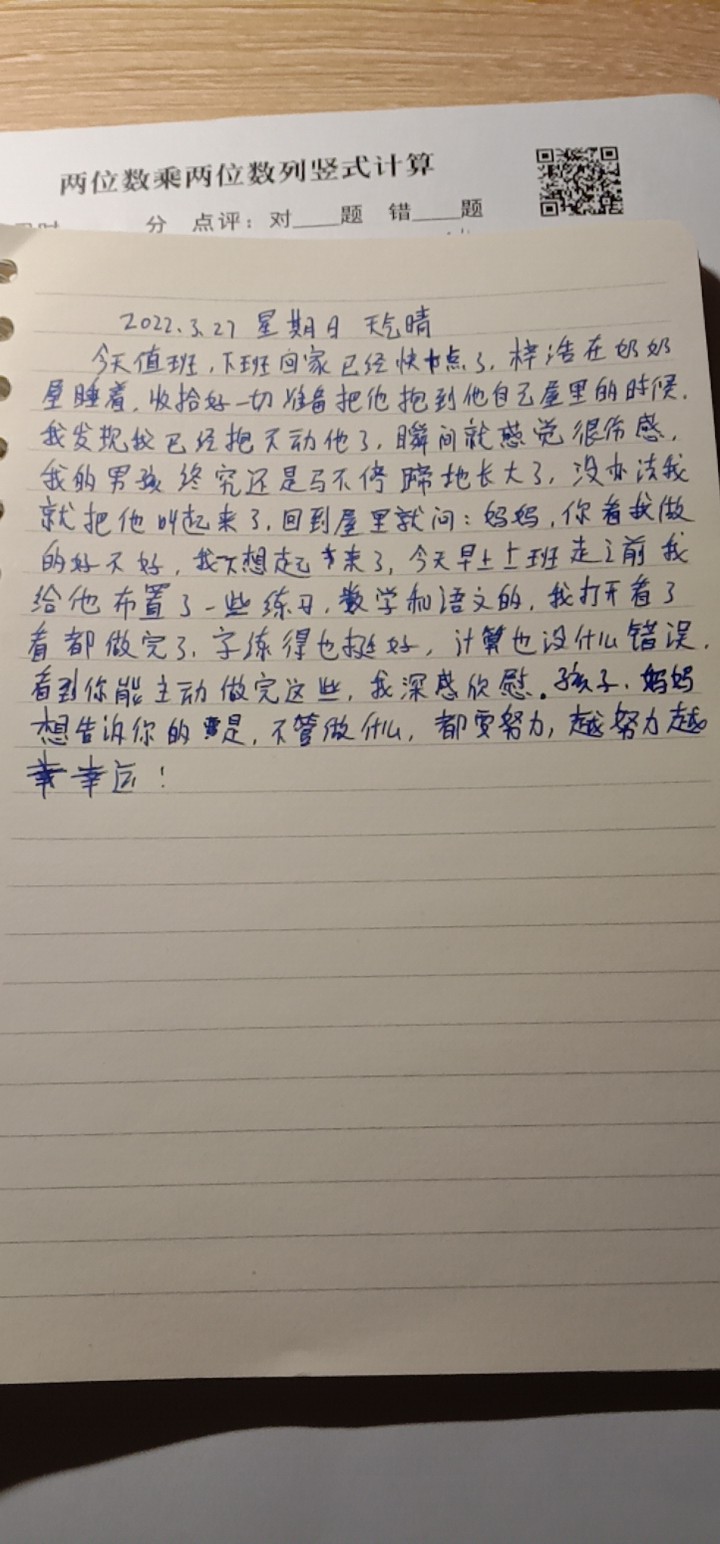 两位数乘两位数列竖式计算
分 点评：对____题 错____题
2022.3.27 星期日 天气晴
今天值班，下班回家已经快十点了，梓浩在奶奶
屋睡着，收拾好一切准备把他抱到他自己屋里的时候，
我发现我已经抱不动他了，瞬间就感觉很伤感，
我的男孩终究还是马不停蹄地长大了，没办法我
就把他叫起来了，回到屋里就问：妈妈，你看我做
的好不好，我不想起来了，今天早上上班走之前我
给他布置了一些练习，数学和语文的，我打开看了
看都做完了，字练得也挺好，计算也没什么错误，
看到你能主动做完这些，我深感欣慰。孩子，妈妈
想告诉你的是，不管做什么，都要努力，越努力越
幸运！